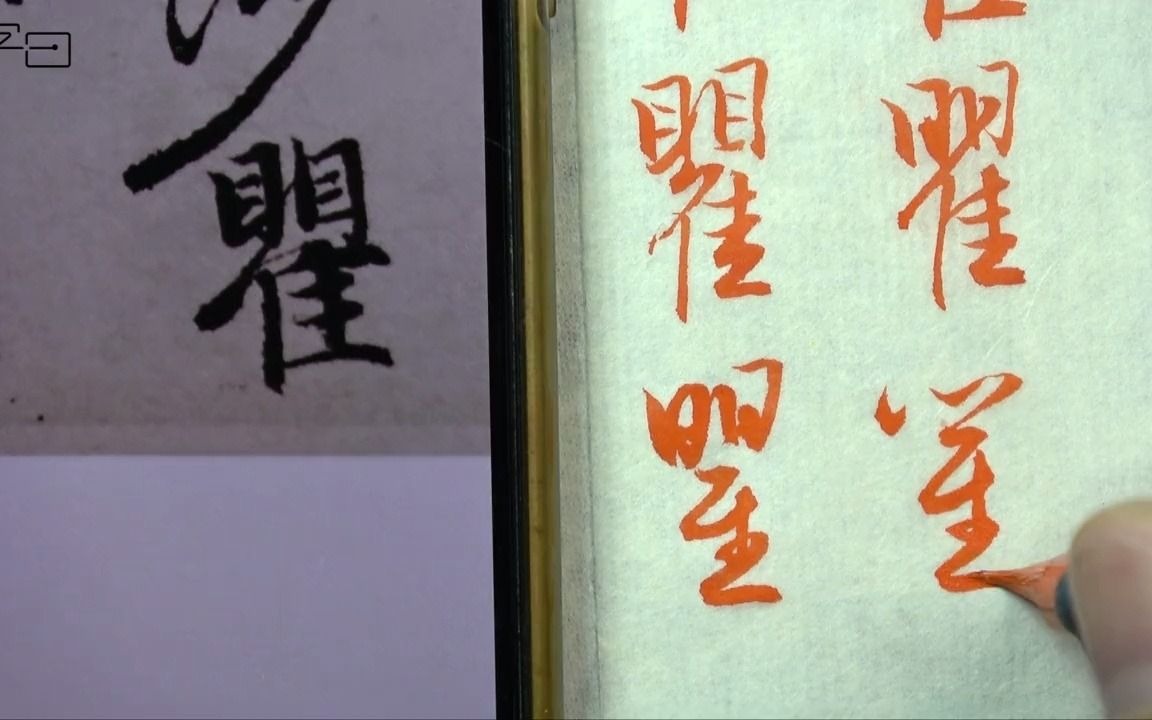 瞿
瞿 瞿
瞿 瞿